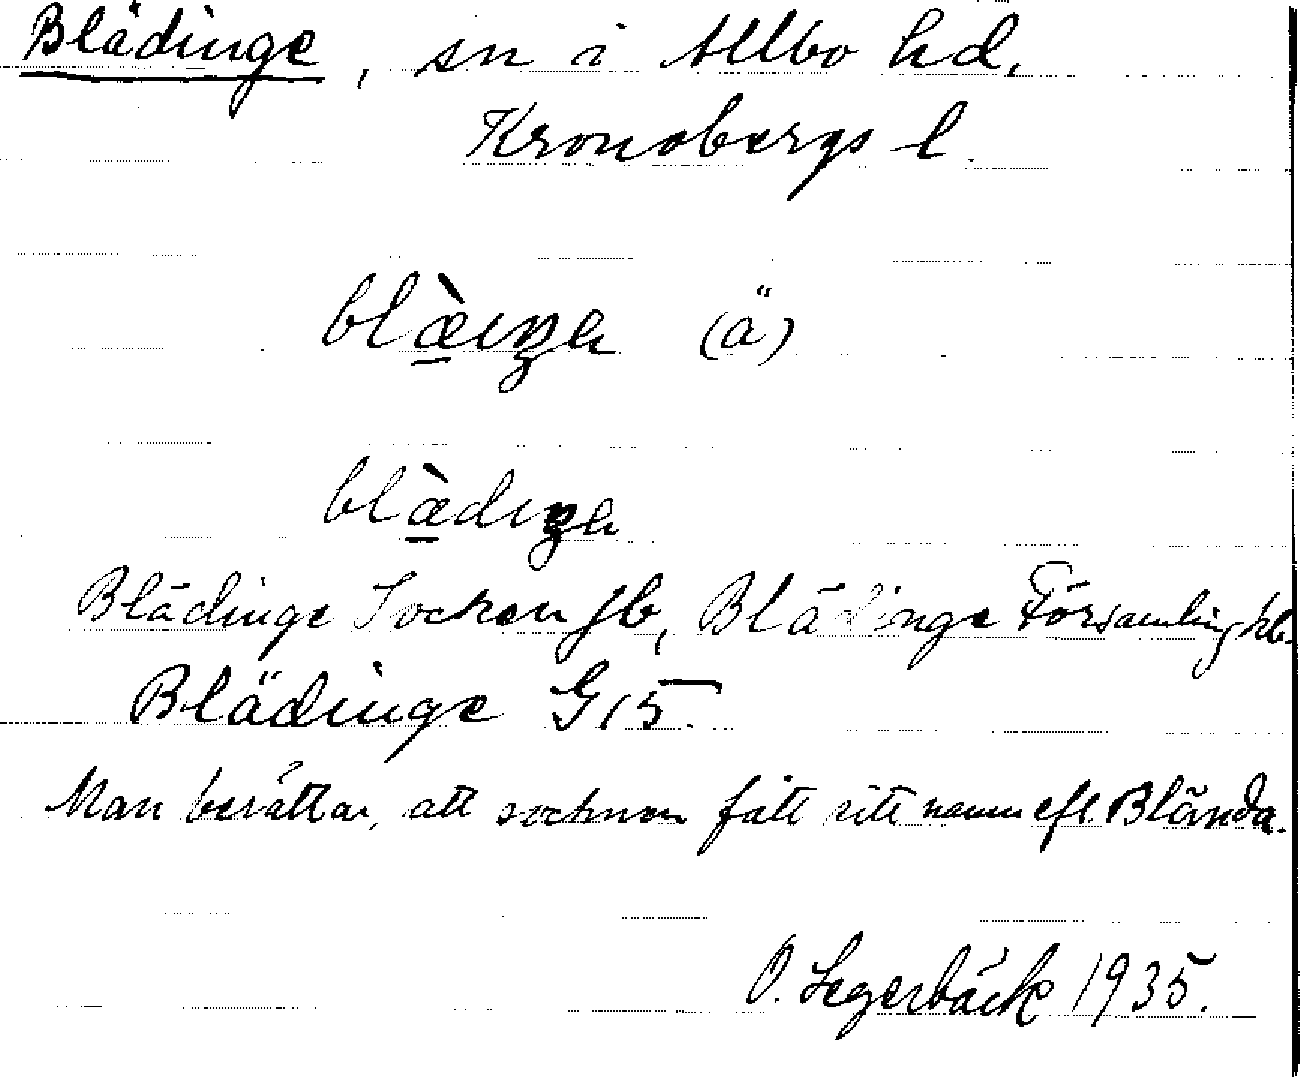 Blädinge, sn i Allbo hd.
Kronobergs l.
blæ̀ıŋa (ä)
blæ̀dıŋa
Blädinge Socken Jb, Blädinge Församling kb.
Blädinge G 15.
Man berättar, att socknen fått sitt namn eft. Blända.
O. Segerbäck 1935.